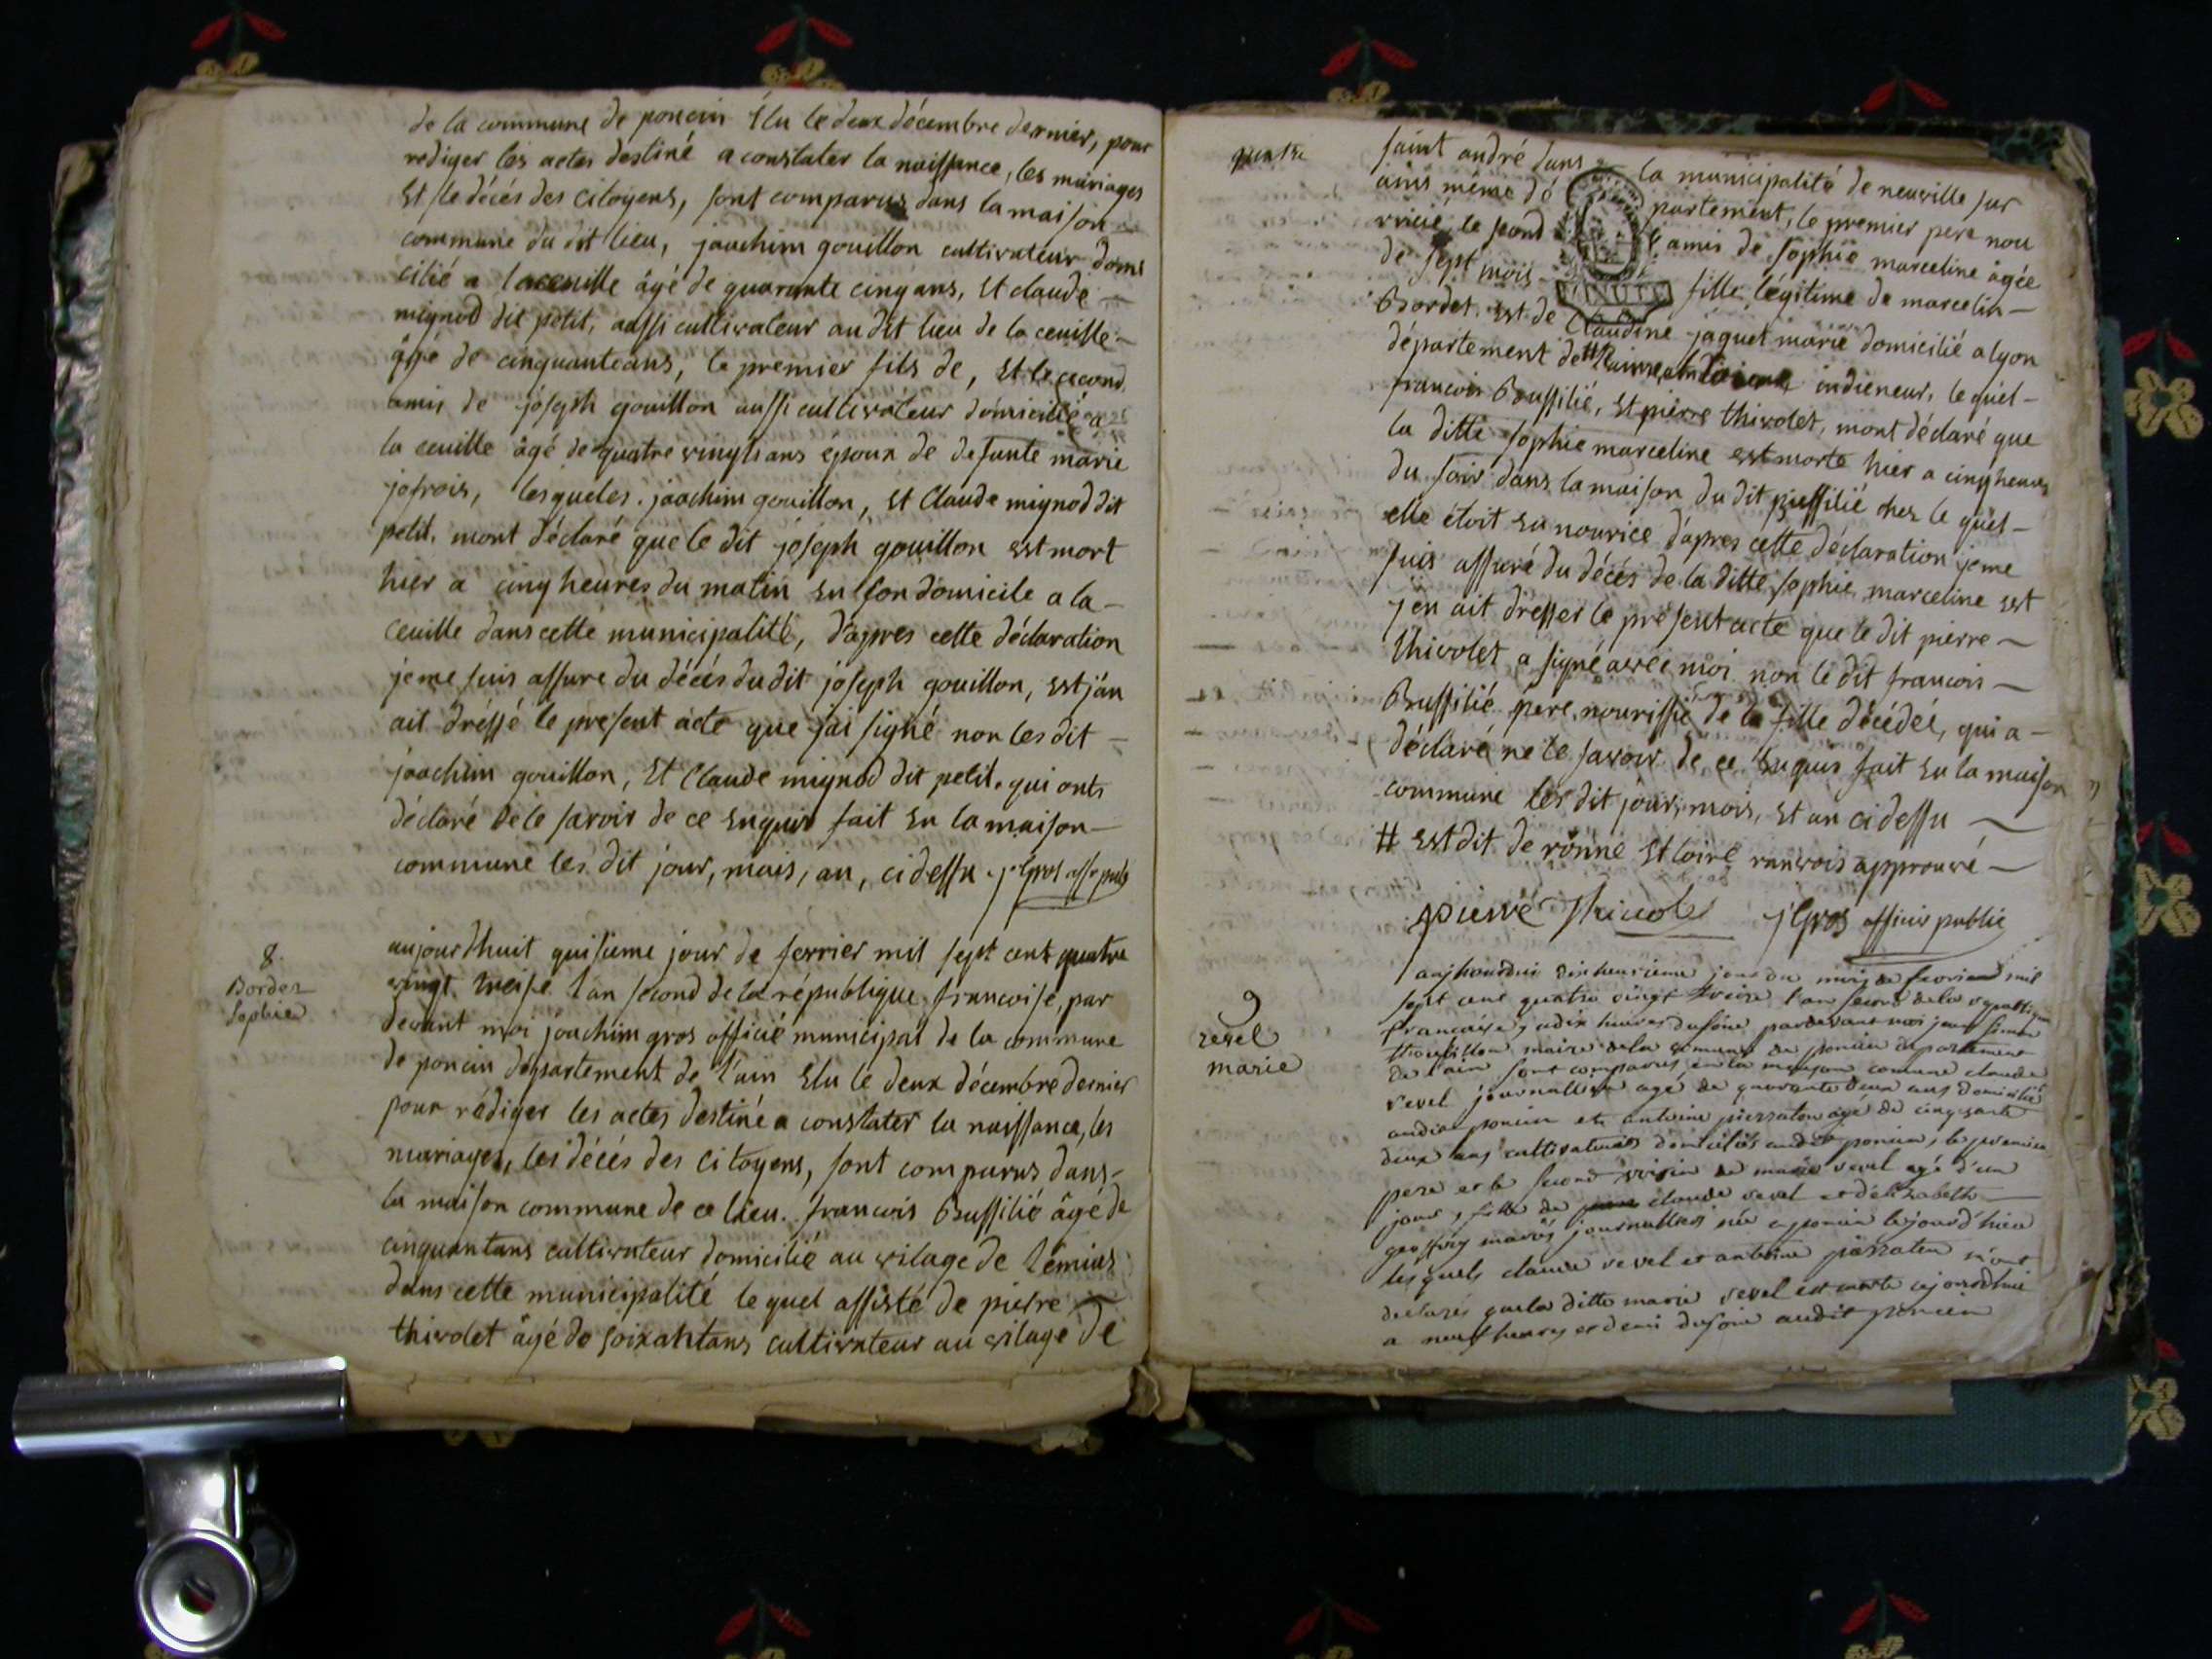 de la commune de poncin Élu le deux décembre dernier, pour
rediger les actes destiné a constater la naissance, les mariages
Et le décès des citoyens, sont comparus dans la maison
commune du dit lieu, joachim gouillon cultivateur domi
cilié a laceuille âgé de quarante cinq ans, Et claude
mignod dit petit, aussi cultivateur au dit lieu de la ceuille
âgé de cinquante ans, le premier fils de, Et le second
amis de joseph gouillon aussi cultivateur domicilié a
la ceuille âgé de quatre vingts ans époux de defunte marie
jofrois, lesqueles joachim gouillon, Et Claude mignod dit
petit, mont déclaré que le dit joseph gouillon est mort
hier a cinq heures du matin en son domicile a la
ceuille dans cette municipalité, d'apres cette déclaration
jeme suis assure du décès du dit joseph gouillon, est j'an
ait dréssé le present acte que jai signé non les dit
joachim gouillon, Et Claude mignod dit petit, qui onts
déclaré ne le savoir de ce enquis fait en la maison
commune les dit jour, mois, an, ci dessu j. Gros
8.
Bordet
Sophie
aujourdhuit quisieme jour de fevrier mil sept cent quatre
vingt treise l'an second de la république francoise, par
devant moi joachim gros officié municipal de la commune
de poncin département de l'ain Elu le deux décembre dernier
pour rédiger les actes destiné a constater la naissance, les
mariages, les décés des Citoyens, sont comparus dans
la maison commune de ce lieu. francois Bussilié âgé de
cinquantans cultivateur domicilié au vilage de
dans cette municipalité le quel assisté de pierre
thivolet âgé de soixantans cultivateur au vilage de
saint andré dans la municipalité de neuville sur
ains même département, le premier pere nou
ricié, le second amis de Sophie marceline âgée
de sept mois fille légitime de marcelin
Bordet Est de Claudine jaquet marié domicilié a lyon
département de # indieneur, le quel
francois Bussilié, Et pierre thivolet, mont déclaré que
la ditte Sophie marceline est morte hier a cinq heures
du soir dans la maison du dit Bussilié ches le quel
elle étoit en nourice d'apres cette déclaration jeme
suis assuré du décés de la ditte Sophie marceline est
j'en ait dresser le présent acte que le dit pierre
thivolet a signé avec moi non le dit francois
Bussilié pere nourissié de la fille décédée, qui a
déclaré ne le savoir de ce enquis fait en la maison
commune les dit jour, mois, Et an ci dessu
# est dit de rônne Et loire approuvé
pierre Thivolet j Gros officier public
9
revel
marie
aujhourdui dixheuvieme jour du mois de fevrier mil
sept cent quatre vingt treize l'an second de la republique
francaise, a dix heures du soire pardevant moi jean
maire de la comune de poncin departement
de l'ain sont comparus en la maison comune claude
revel journallier agé de quarante deux ans domicilié
audit poncin et antoine pierraton agé de cinqsante
deux ans cultivateurs domiciliés audit poncin, le premier
pere et le second voisin de marie revel agé d'un
jour, fille de claude revel et d'elizabeth
geoffrey mariés journalliers née a poncin le jourd'hier
lesquels claude revel et antoine pierraton m'ont
declarés quela ditte marie revel est morte cejourdhui
a neuf heures et demi du soir audit poncin